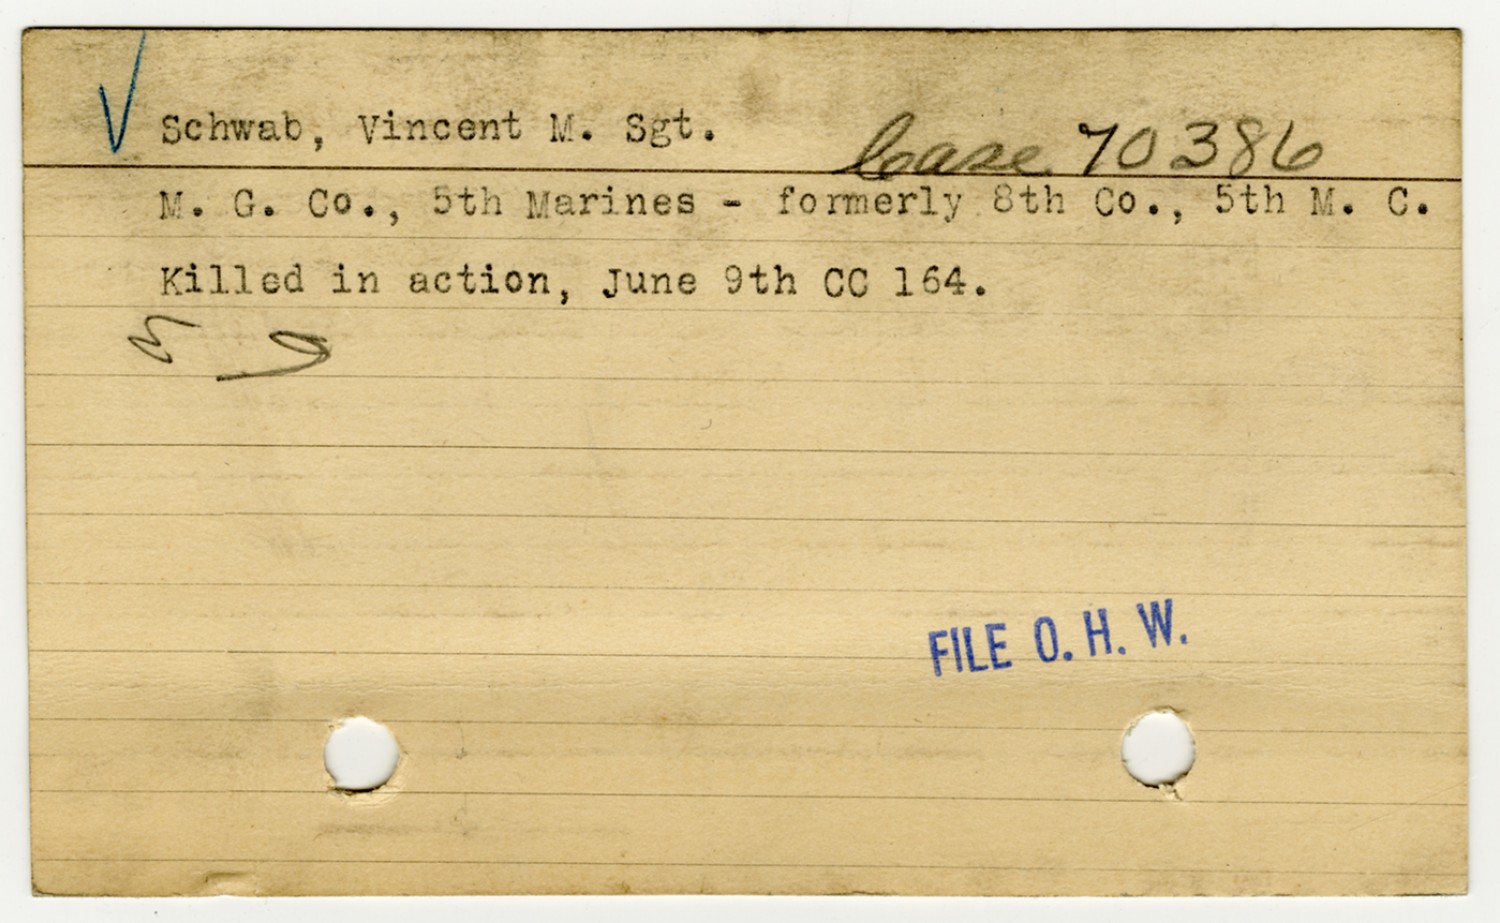 Schwab, Vincent M. Sgt.
Case 70386
M. G. Co., 5th Marines - formerly 8th Co., 5th M. C.
Killed in action, June 9th CC 164.
FILE O. H. W.